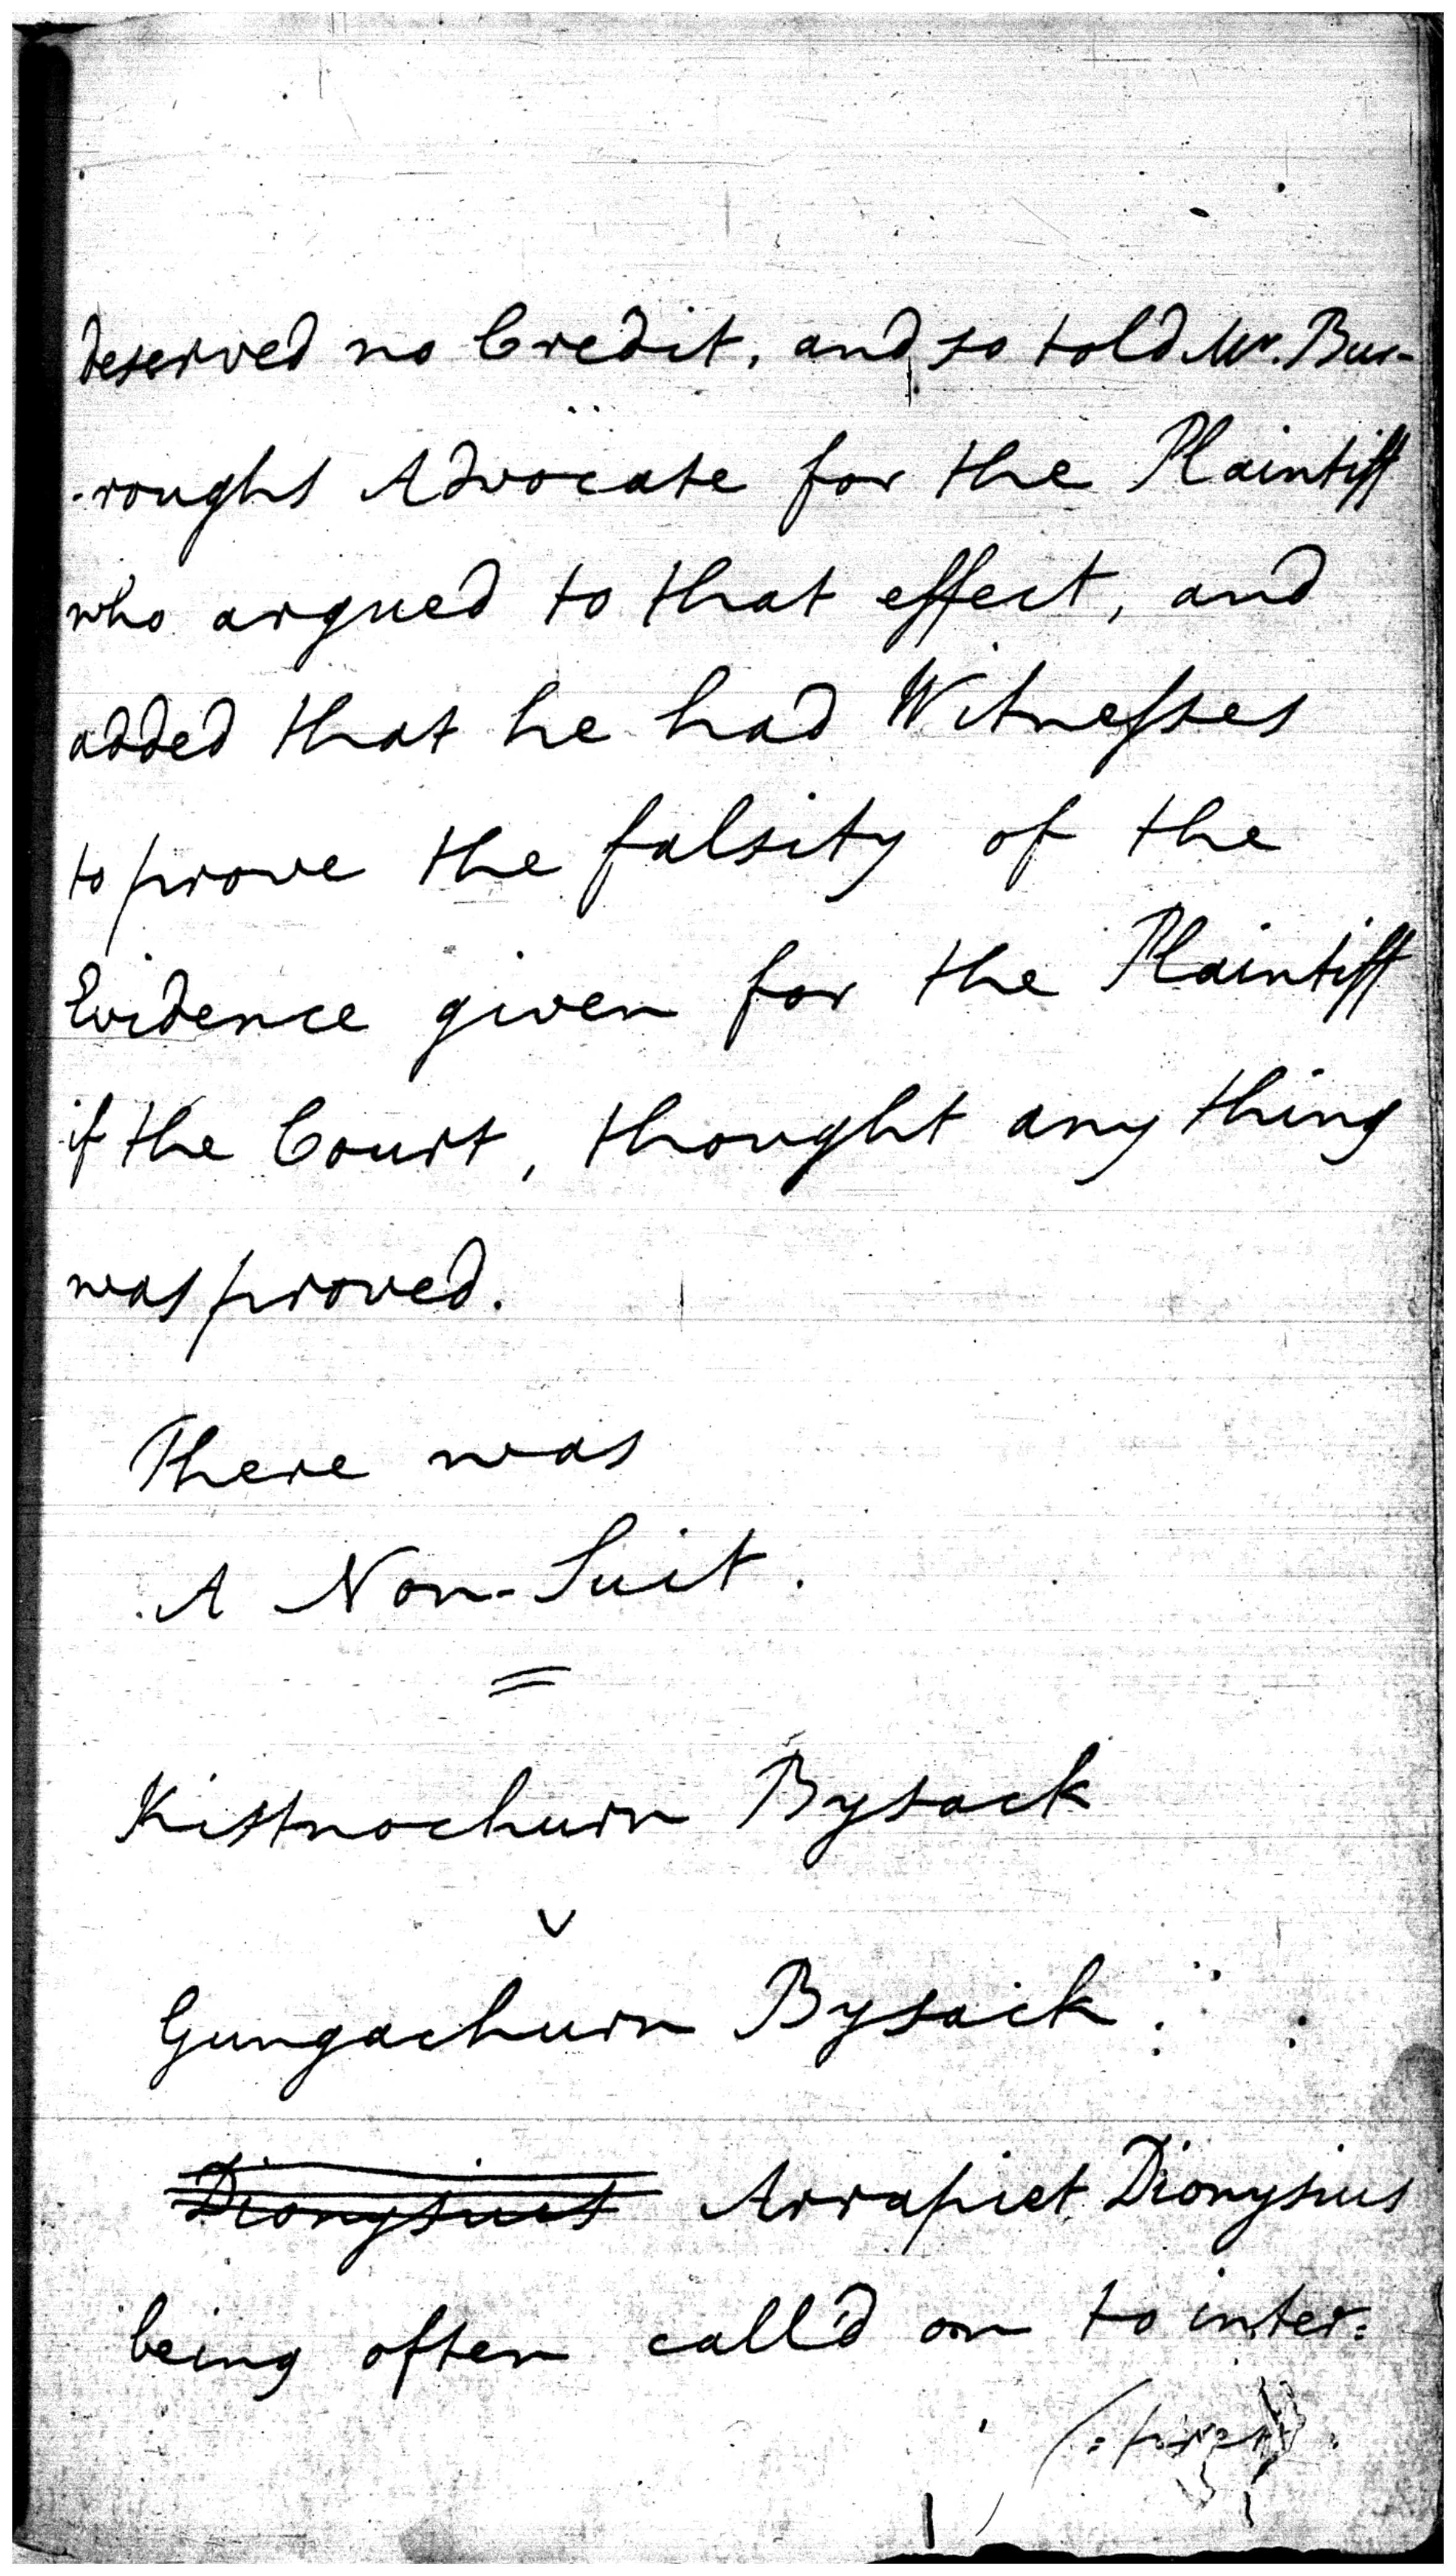 deserved no Credit, and so told Mr. Bur-
-roughs Advocate for the Plaintiff
who argued to that effect, and
added that he had Witnesses
to prove the falsity of the
Evidence given for the Plaintiff
if the Court, thought any thing
was proved.
There was
A Non-Suit.
Kistnochurn Bysack
v
Gungachurn Bysack.
Dionysius Arrapiet Dionysius
being often call'd on to inter=